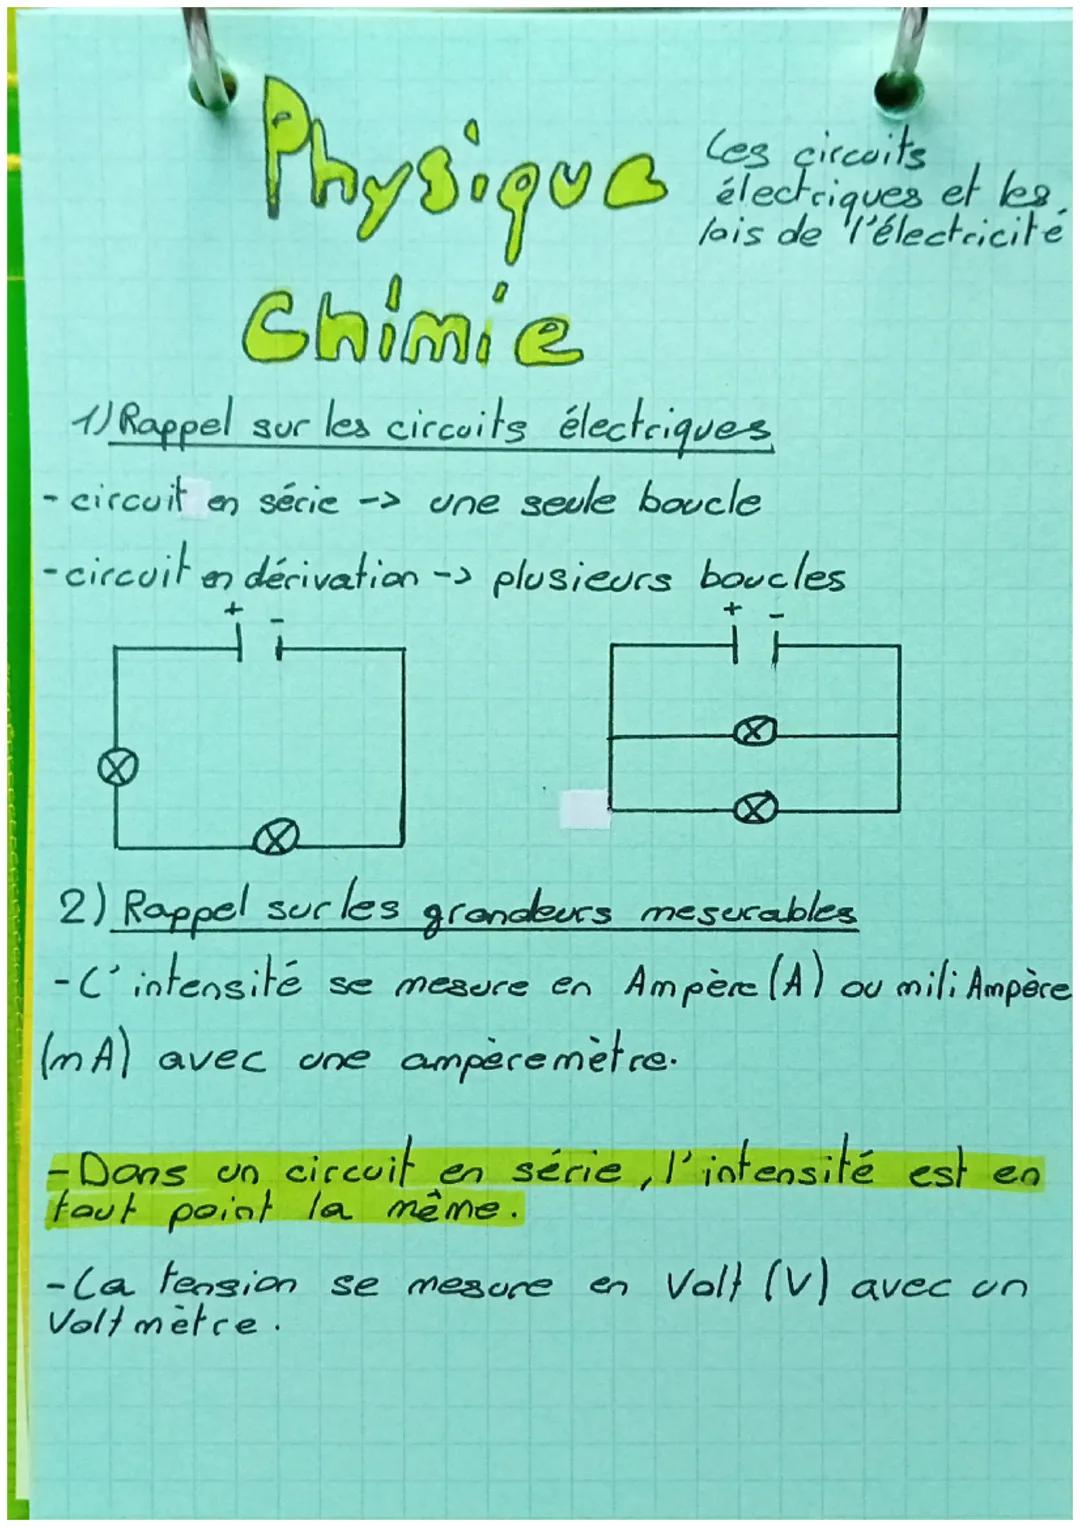 Physique
Chimie
Les circuits
électriques et les
lois de l'électricité
1) Rappel sur les circuits électriques
- circuit en série -> une seule boucle
- circuit en dérivation -> plusieurs boucles
+ -
+ -
2) Rappel sur les grandeurs mesurables
- L'intensité se mesure en Ampère (A) ou mili Ampère
(mA) avec une ampèremètre.
- Dans un circuit en série, l'intensité est en
tout point la même.
- La tension se mesure en Volt (V) avec un
Voltmètre.